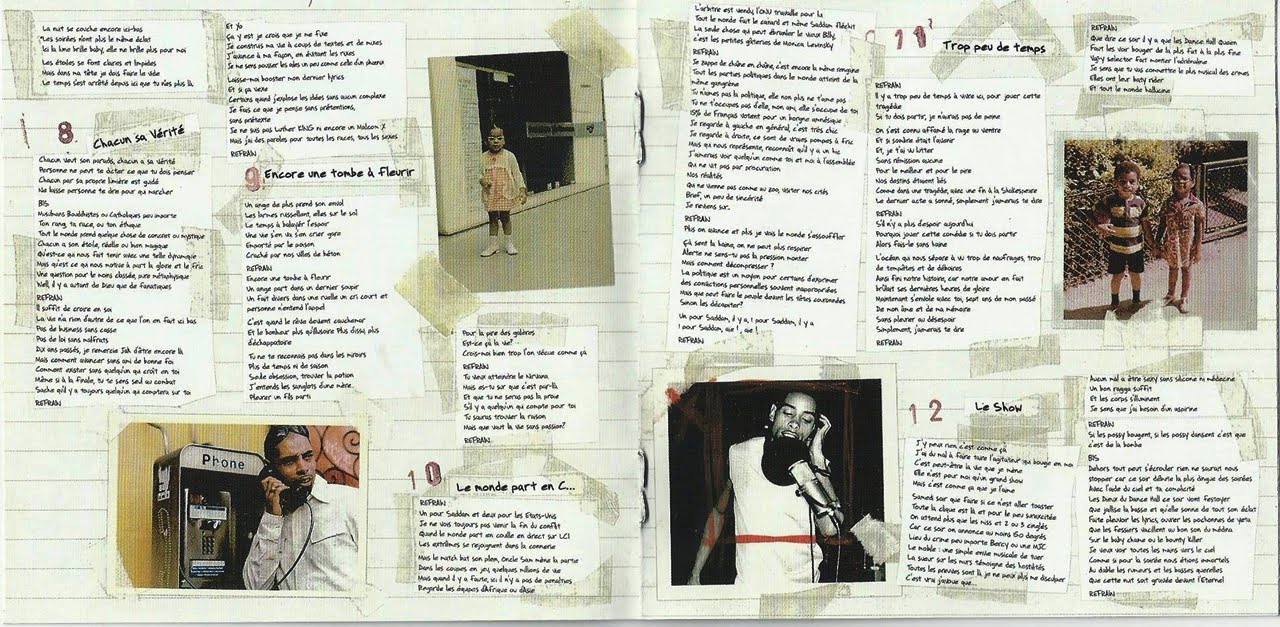 La nuit se couche encore ici-bas
Les soirées n'ont plus le même éclat
Ici la lune brille baby, elle ne brille plus pour moi
Les étoiles se font claires et limpides
Mais dans ma tête je dois faire le vide
Le temps s'est arrêté depuis ici que tu n'es plus là
8. Chacun sa Vérité
Chacun veut son paradis, chacun a sa vérité
Personne ne peut te dicter ce que tu dois penser
Chacun par sa propre lumière est guidé
Ne laisse personne te dire pour qui marcher
BIS
Musulmans Bouddhistes ou Catholiques peu importe
Ton rang, ta race, ou ton éthique
Tout le monde prend quelque chose de concret ou mystique
Chacun a son étoile, réelle ou bien magique
Qu'est-ce qui nous fait tenir avec une telle dynamique
Mais qu'est-ce qui nous motive à part la gloire et le fric
Une question pour le moins classée, pure métaphysique
Well, il y a autant de Dieu que de fanatiques
REFRAIN
Il suffit de croire en soi
La vie n'a rien d'autre de ce que l'on en fait ici bas
Pas de business sans casse
Pas de loi sans malfrats
Dix ans passés, je remercie Jah d'être encore là
Mais comment avancer sans ami de bonne foi
Comment exister sans quelqu'un qui croit en toi
Même si à la finale, tu te sens seul au combat
Sache qu'il y a toujours quelqu'un qui comptera sur toi
REFRAIN
Et Yo
Ça y est je crois que je me fixe
Je construis ma vie à coups de textes et de mixes
J'avance à ma façon, en évitant les rixes
Je me sens pousser les ailes un peu comme celle d'un phoenix
Laisse-moi booster mon dernier lyrics
Et si ça vexe
Certains quand j'explose les idées sans aucun complexe
Je fais ce que je pense sans prétentions,
sans prétexte
Je ne suis pas Luther KING ni encore un Malcom X
Mais j'ai des paroles pour toutes les races, tous les sexes
REFRAIN
9 Encore une tombe à fleurir
Un ange de plus prend son envol
Les larmes ruissellent, elles sur le sol
Le temps à balayer l'espoir
Une vie s'en va s'en crier gare
Emporté par le poison
Craché par nos villes de béton
REFRAIN
Encore une tombe à fleurir
Un ange part dans un dernier soupir
Un fait divers dans une ruelle un cri court et
personne n'entend l'appel
C'est quand le rêve devient cauchemar
Et le bonheur plus qu'illusoire Plus d'issu, plus
d'échappatoire
Tu ne te reconnais pas dans les miroirs
Plus de temps ni de saison
Seule obsession, trouver la potion
J'entends les sanglots d'une mère
Pleurer un fils parti
Phone
Pour la pire des galères
Est-ce ça la vie?
Crois-moi bien trop l'on vécue comme ça
REFRAIN
Tu veux atteindre le Nirvana
Mais es-tu sur que c'est par-là
Et que tu ne seras pas la proie
S'il y a quelqu'un qui compte pour toi
Tu sauras trouver la raison
Mais que vaut la vie sans passion?
REFRAIN
10 Le monde part en C...
REFRAIN
Un pour Saddam et deux pour les Etats-Unis
Je ne vois toujours pas venir la fin du conflit
Quand le monde part en couille en direct sur LCI
Les extrêmes se rejoignent dans la connerie
Mais le match but son plein, Oncle Sam mène la partie
Dans les coupes en jeu, quelques millions de vie
Mais quand il y a faute, ici il n'y a pas de penalties
Regarde les équipes d'Afrique ou d'Asie
L'arbitre est vendu, l'ONU travaille pour la
Tout le monde fait le canard et même Saddam fléchit
La seule chose qui peut ébranler le vieux Billy,
c'est les petites gâteries de Monica Levinsky
REFRAIN
Je zappe de chaîne en chaîne, c'est encore la même rengaine
Tout les parties politiques dans le monde atteint de la
même gangrène
Tu n'aimes pas la politique, elle non plus ne t'aime pas
Tu ne t'occupes pas d'elle, mon ami, elle s'occupe de toi
15% de Français votent pour un borgne amnésique
Je regarde à gauche en général, c'est très chic
Je regarde à droite, ce sont de vraies pompes à fric
Mais qui nous représente, reconnaît qu'il y a un hic
J'aimerais voir quelqu'un comme toi et moi à l'assemblée
Qui ne vit pas par procuration
Nos réalités
Qui ne vienne pas comme au zoo, visiter nos cités
Bref, un peu de sincérité
Je reviens sur...
REFRAIN
Plus on avance et plus je vois le monde s'essouffler
Çà sent la haine, on ne peut plus respirer
Alerte ne sens-tu pas la pression monter
Mais comment décompresser ?
La politique est un moyen pour certains d'exprimer
des convictions personnelles souvent inappropriées
Mais que peut faire le peuple devant les têtes couronnées
Sinon les décapiter?
Un pour Saddam, il y a, 1 pour Saddam, il y a
1 pour Saddam, aie !, aie !
REFRAIN
11 Trop peu de temps
REFRAIN
Il y a trop peu de temps à vivre ici, pour jouer cette
tragédie
Si tu dois partir, je n'aurais pas de peine
On s'est connu affamé la rage au ventre
Et si sombre était l'avenir
Et, je t'ai vu lutter
Sans rémission aucune
Pour le meilleur et pour le pire
Nos destins étaient liés
Comme dans une tragédie, avec une fin à la Shakespeare
Le dernier acte a sonné, simplement j'aimerais te dire
REFRAIN
S'il n'y a plus d'espoir aujourd'hui
Pourquoi jouer cette comédie si tu dois partir
Alors fais-le sans haine
L'océan qui nous sépare à vu trop de naufrages, trop
de tempêtes et de déboires
Ainsi fini notre histoire, car notre amour en fait
brûlait ses dernières heures de gloire
Maintenant s'envole avec toi, sept ans de mon passé
De mon âme et de ma mémoire
Sans pleurer au désespoir
Simplement, j'aimerais te dire
REFRAIN
REFRAIN
Que dire ce soir il y a que les Dance Hall Queen
Faut les voir bouger de la plus fat à la plus fine
Vigny selector fait monter l'adrénaline
Je sens que tu vas commettre le plus musical des crimes
Elles ont leur batty rider
Et tout le monde hallucine
12 Le Show
J'y peux rien c'est comme çà
J'ai du mal à faire taire l'agitateur qui bouge en moi
C'est peut-être la vie que je mène
Elle n'est pour moi qu'un grand show
Mais c'est comme ça que je l'aime
Samedi soir que faire si ce n'est aller toaster
Toute la clique est là et pour le peu surexcitée
On attend plus que les miss et 2 ou 3 cinglés
Car ce soir on annonce au moins 150 degrés
Lieu du crime peu importe Bercy ou une MJC
Le mobile : une simple envie musicale de tuer
La sueur sur les murs témoigne des hostilités
Toutes les preuves sont là je ne peux plus me disculper
C'est vrai j'avoue que...
Aucun mal a être sexy sans silicone ni médecine
Un bon ragga suffit
Et les corps s'illuminent
Je sens que j'ai besoin d'un aspirine
REFRAIN
Si les possy bougent, si les possy dansent c'est que
c'est de la bombe
BIS
Dehors tout peut s'écrouler rien ne saurait nous
stopper car ce soir débute la plus dingue des soirées
Avec l'aide du ciel et ta complicité
Les Dieux du Dance Hall ce soir vont festoyer
Que jaillise la basse et qu'elle sonne de tout son éclat
Faite pleuvoir les lyrics, ouvrer les pochonnes de yeta
Que les fessiers vacillent au bon son du médina
Sur le baby cham ou le bounty killer
Je veux voir toutes les mains vers le ciel
Comme si pour la soirée nous étions immortels
Au diable les rumeurs et les basses querelles
Que cette nuit soit gravée devant l'Eternel
REFRAIN